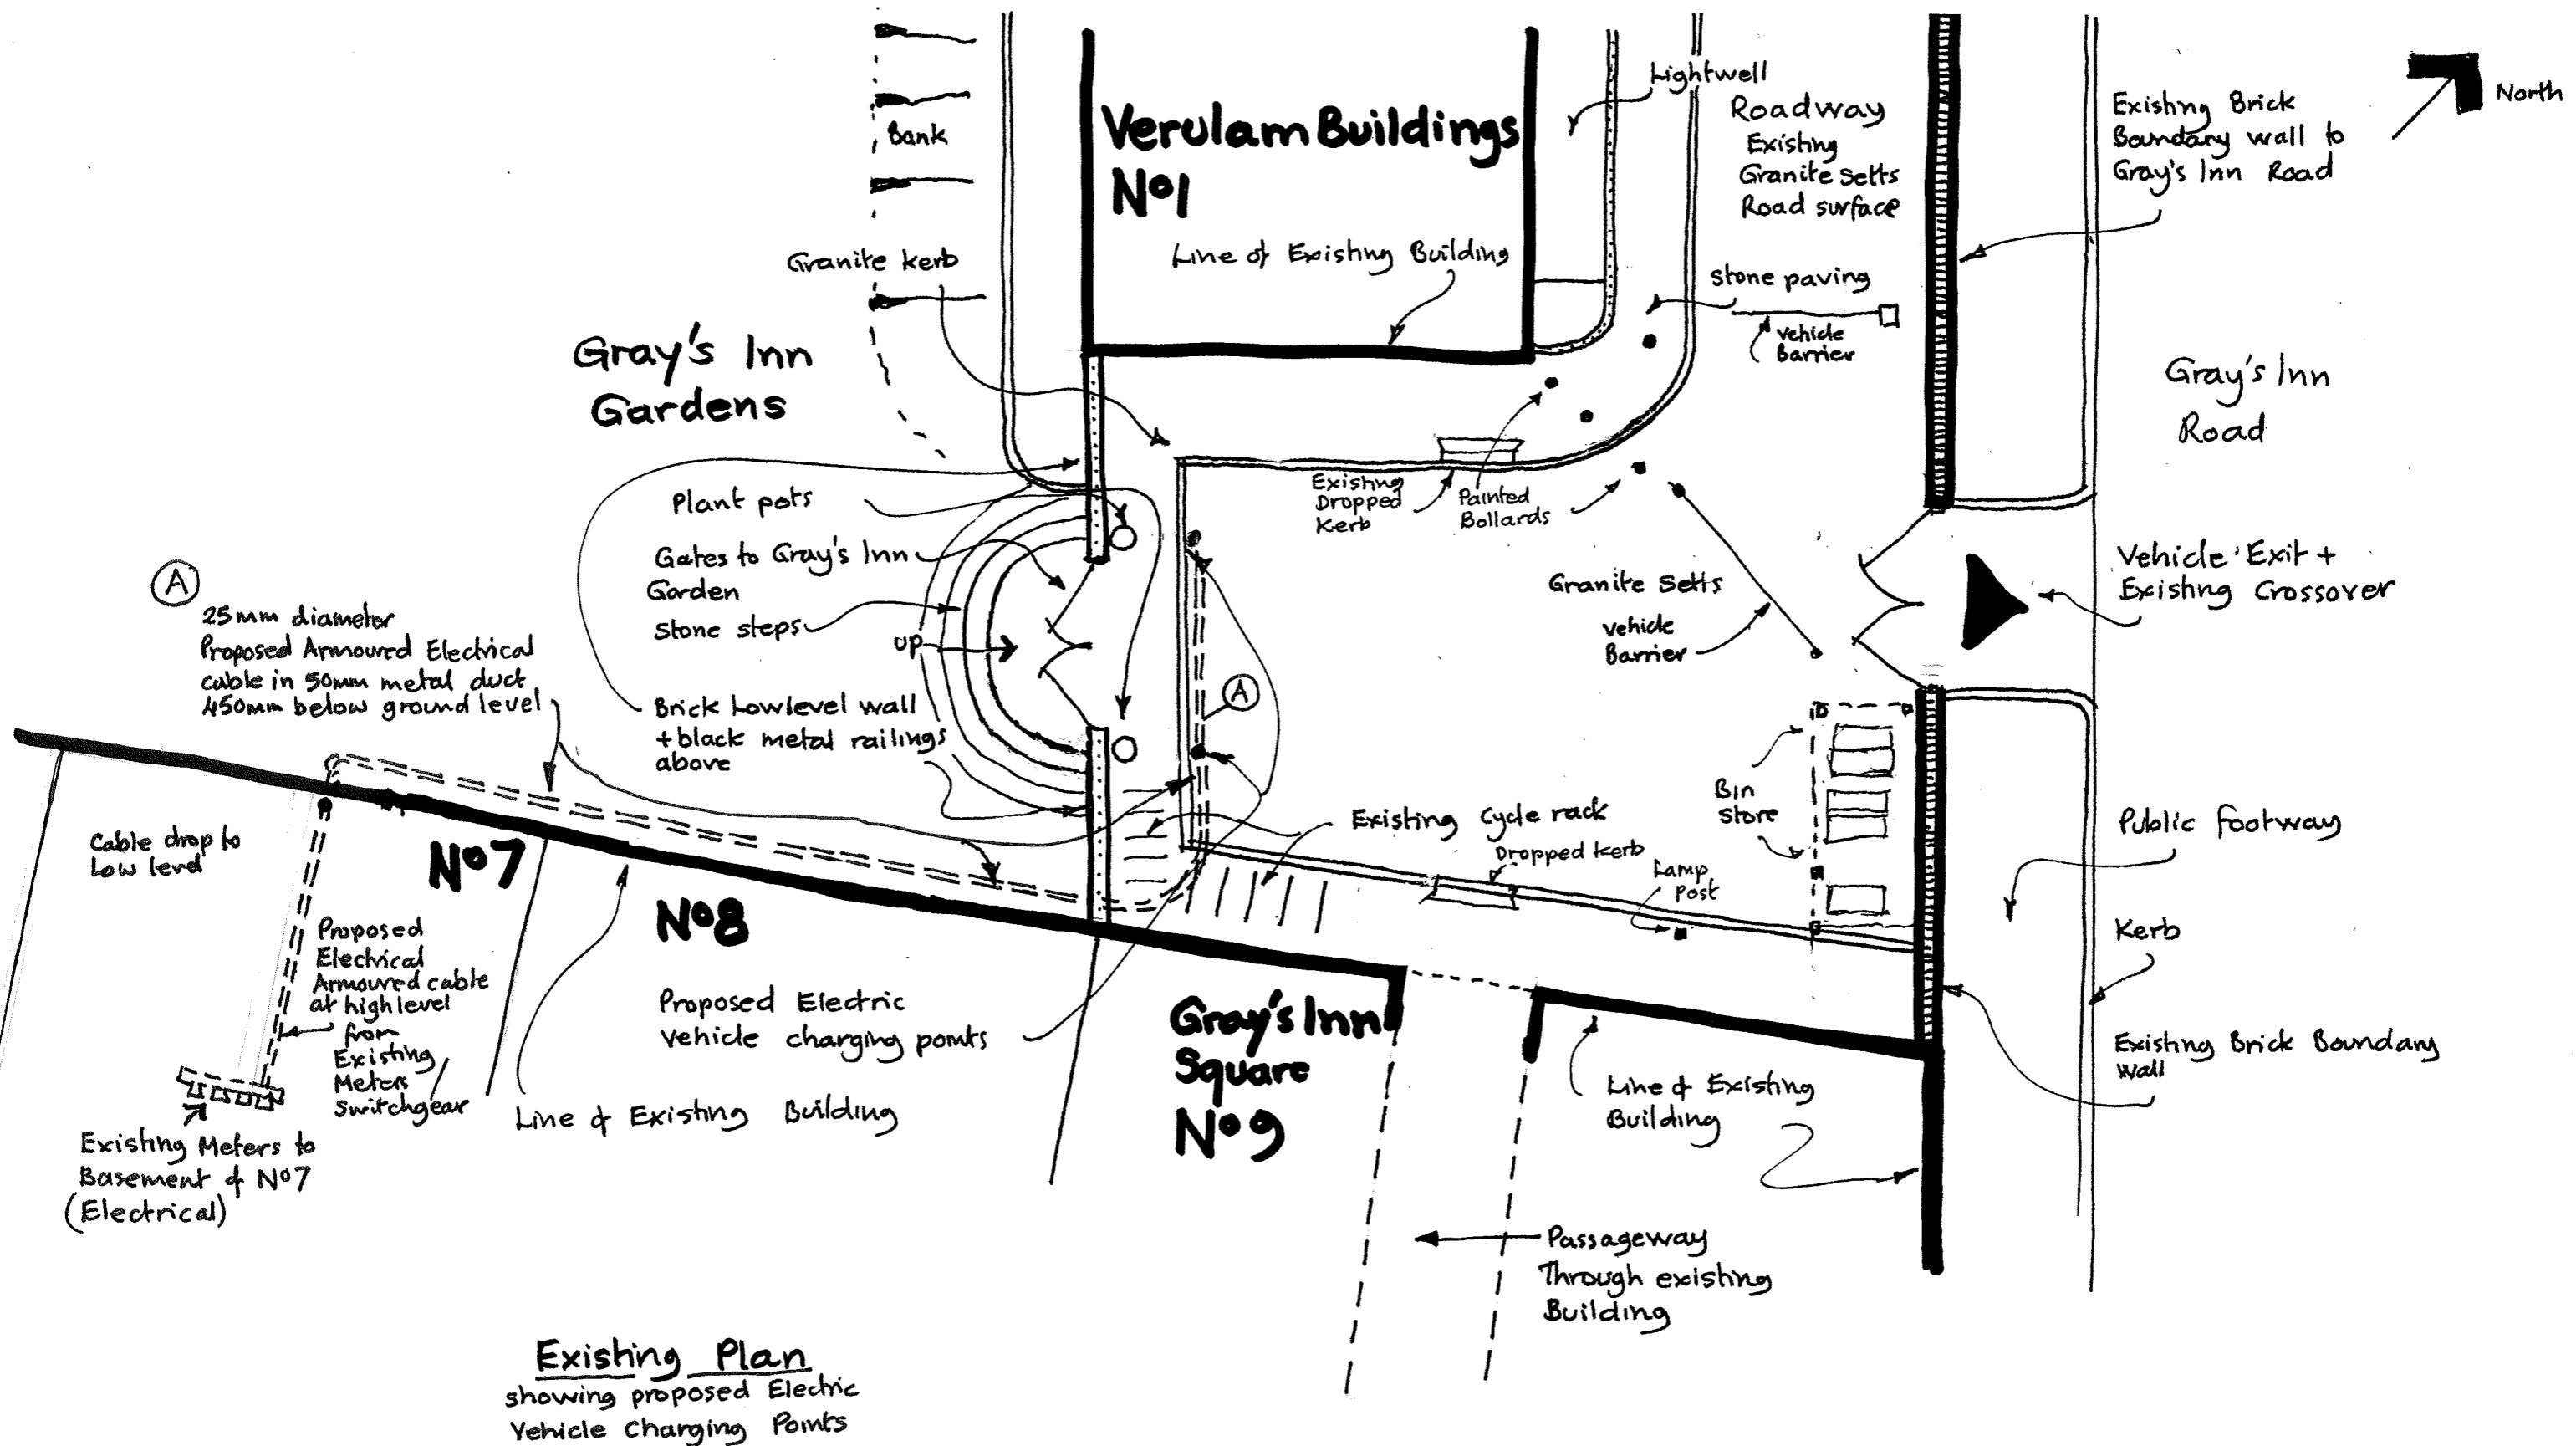 Lightwell
Roadway
Existing
Granite Setts
Road surface
Existing Brick
Boundary wall to
Gray's Inn Road
North
Bank
Verulam Buildings
No1
Line of Existing Building
Granite kerb
Stone paving
Vehicle
Barrier
Gray's Inn
Gardens
Gray's Inn
Road
Existing
Dropped
Kerb
Painted
Bollards
Plant pots
Gates to Gray's Inn
Garden
Stone steps
UP
Granite Setts
Vehicle
Barrier
Vehicle Exit +
Existing Crossover
A
25mm diameter
Proposed Armoured Electrical
cable in 50mm metal duct
450mm below ground level
A
Brick Low level wall
+ black metal railings
above
Bin
store
Existing Cycle rack
Dropped kerb
Lamp
Post
Public footway
Cable drop to
Low level
No7
No8
Kerb
Proposed
Electrical
Armoured cable
at high level
from
Existing
Meters
Switchgear
Proposed Electric
Vehicle charging points
Gray's Inn
Square
No9
Existing Brick Boundary
Wall
Line of Existing Building
Line of Existing
Building
Existing Meters to
Basement of No7
(Electrical)
Passageway
Through existing
Building
Existing Plan
showing proposed Electric
Vehicle Charging Points